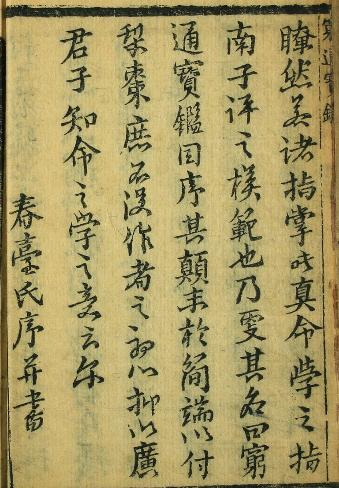 瞭然若諸指掌此真命學之指
南子評之模範也乃更其名曰窮
通寳鑑因序其顛末於簡端以付
梨棗庶不没作者之心抑以廣
君子知命之学之意云尔
春臺氏序并書